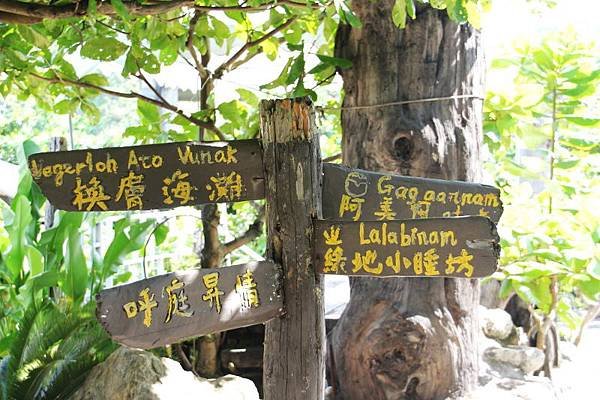 Vegerloh Aro Vunak
換膚海灘
Gagaarnam
阿美
Lalabinam
綠地小睡坊
呼庭昇情